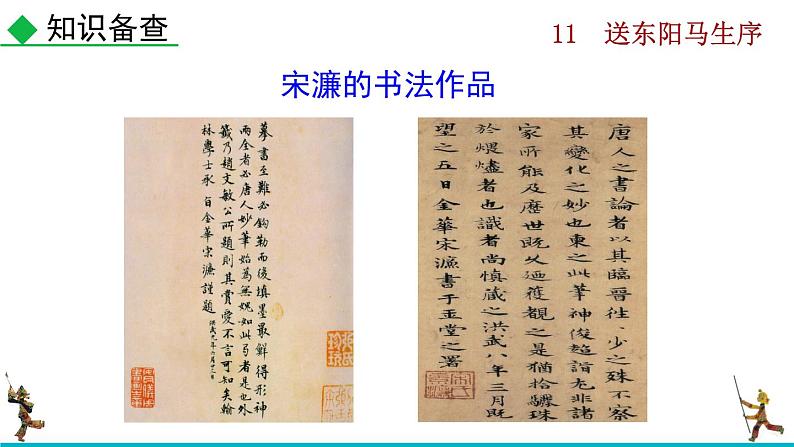 知识备查
11 送东阳马生序
宋濂的书法作品
摹書至難必鈎勒而後填墨最鮮得形神
兩全者必唐人妙筆始為無媿如此弓者是也外
籤乃趙文敏公所題則其賞愛不言可知矣翰
林學士承旨金華宋濂謹題
唐人之書論者以其臨晉往之殊不察
其變化之妙也東之此筆神俊超詣尤非諸
家所能及歷世既久廼獲觀之是猶拾驪珠
於煨燼者也識者尚慎藏之洪武八年三月既
望之五日金華宋濂書于玉堂之署